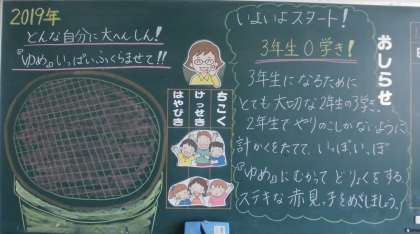 2019年
どんな自分に大へんしん!
『ゆめ』いっぱいふくらませて!!
ちこく
けっせき
はやびき
いよいよスタート!
3年生0学き!
3年生になるために
とても大切な2年生の3学き
2年生でやりのこしがないように
計かくをたてて、いっぽいっぽ
『ゆめ』にむかってどりょくをする
ステキな赤見っ子をめざしましょう。
おしらせ